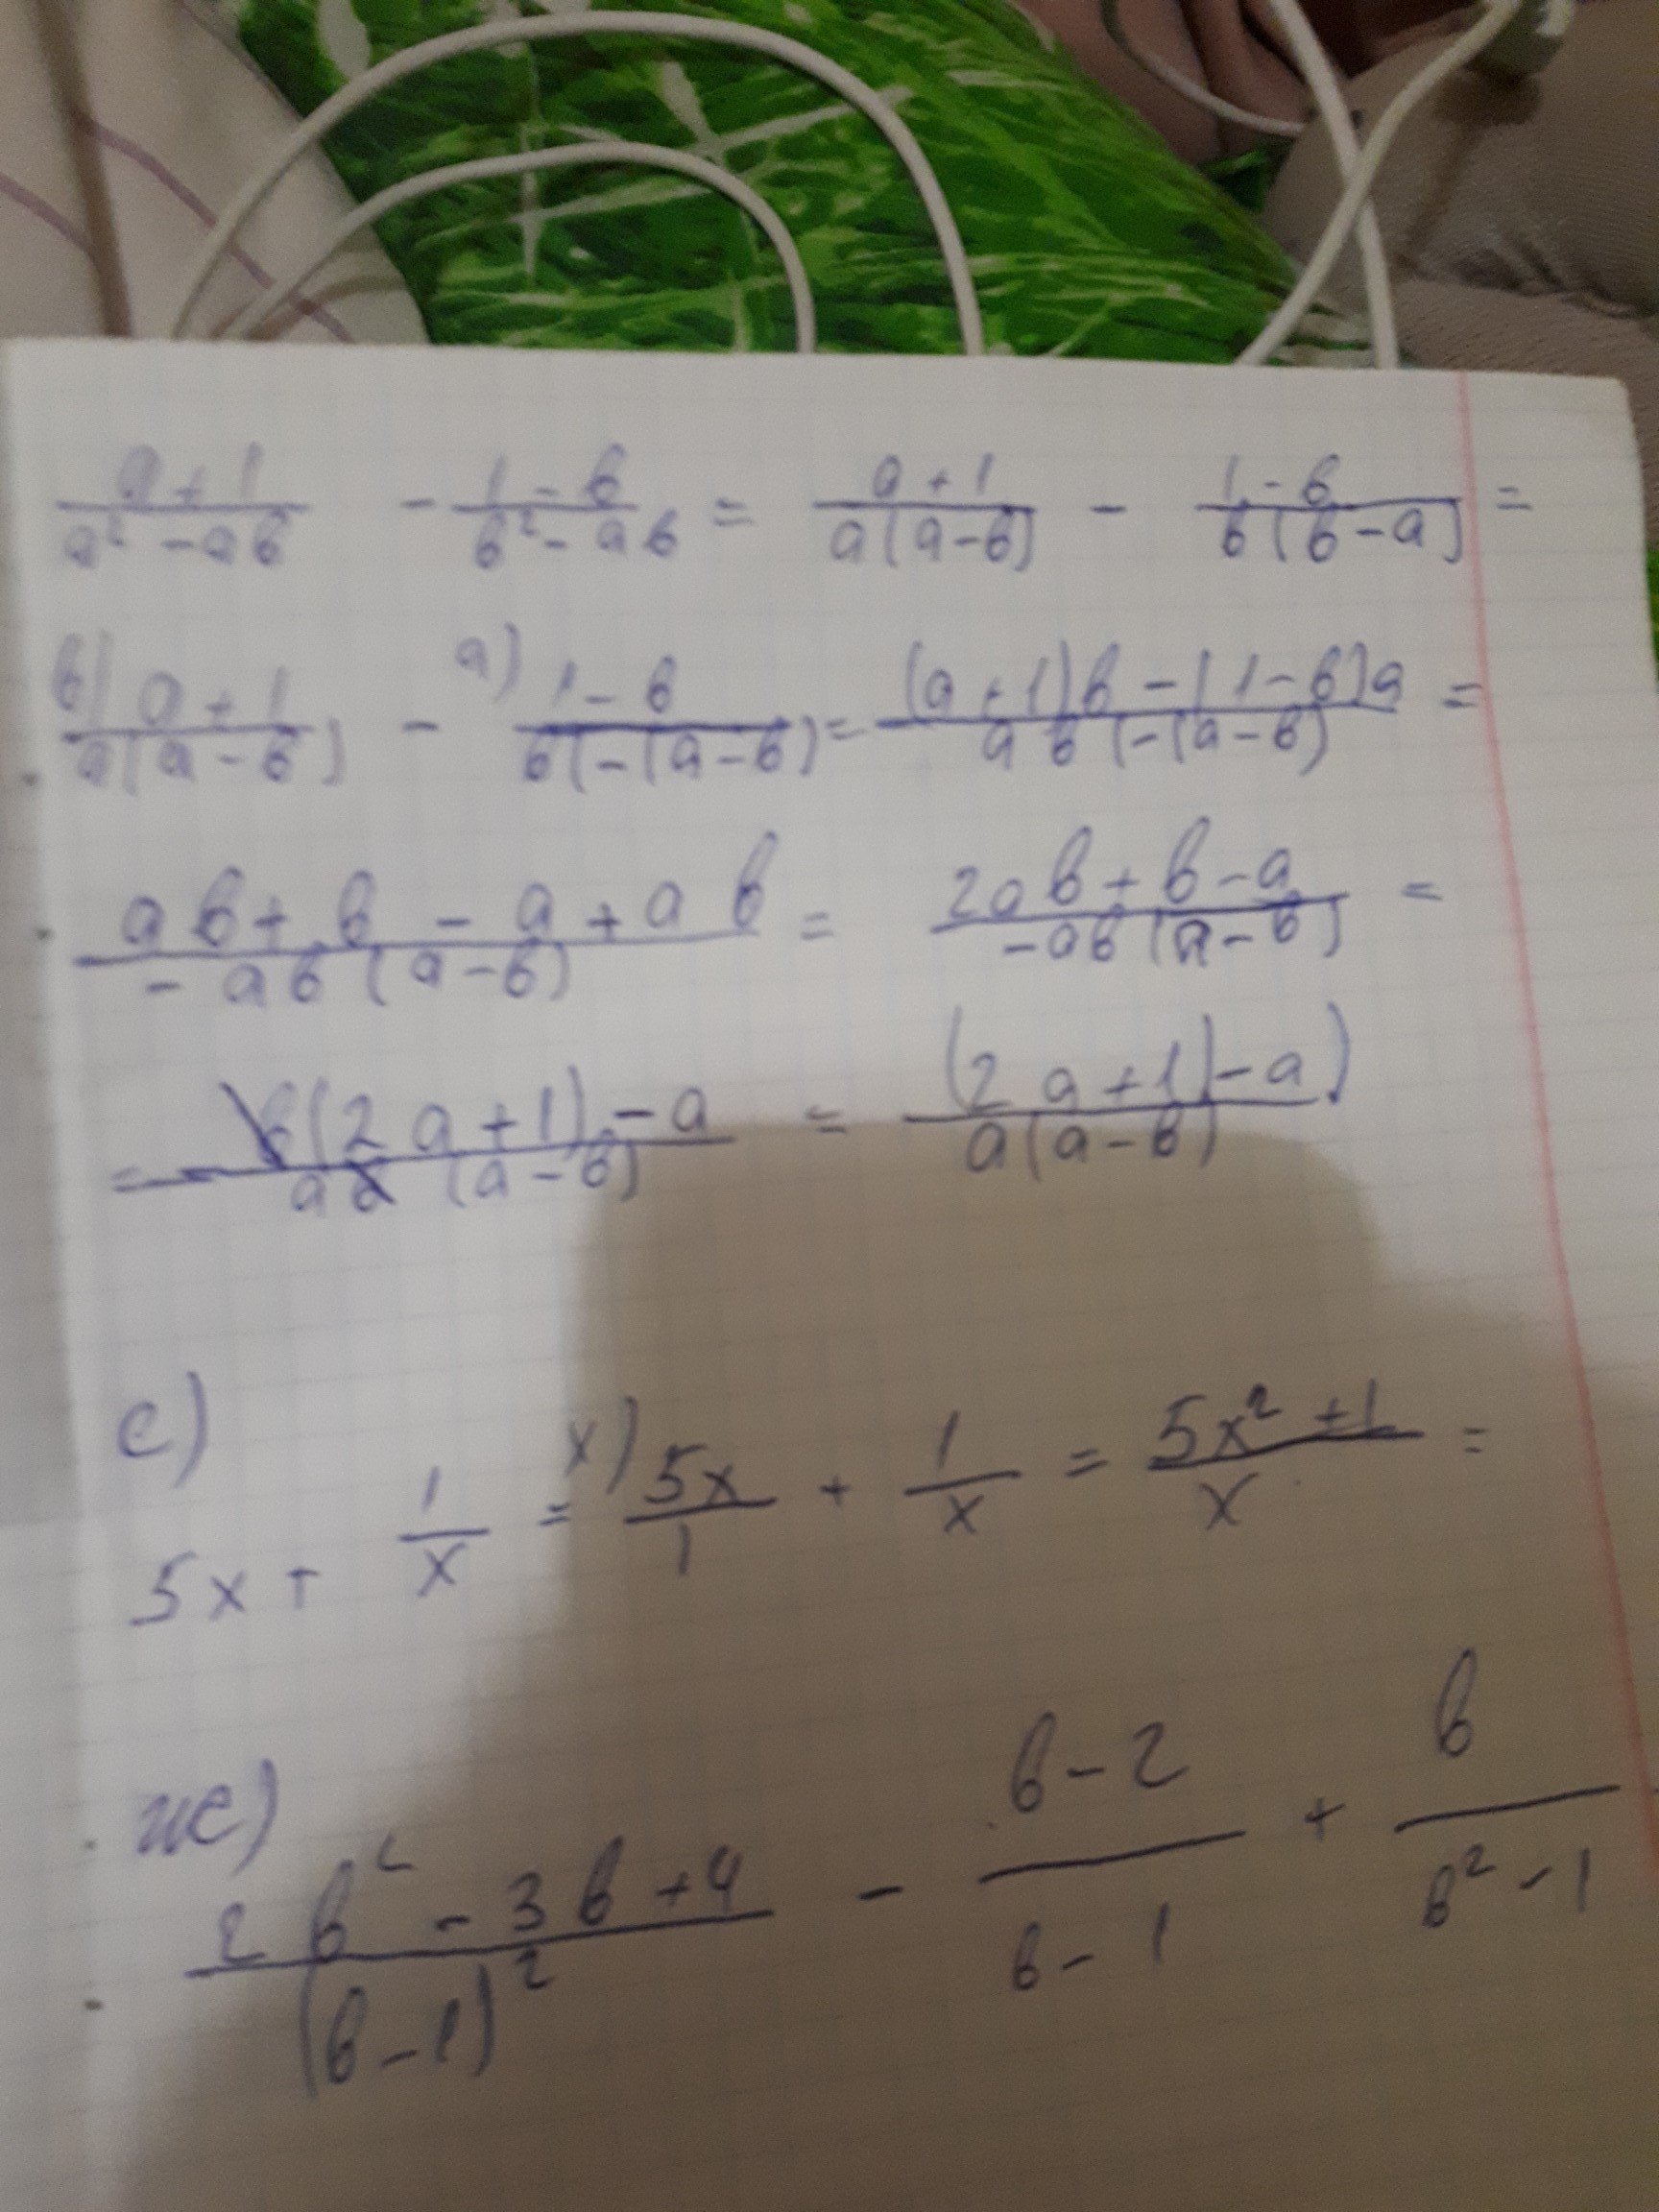 (a+1)/(a²-ab) - (1-b)/(b²-ab) = (a+1)/(a(a-b)) - (1-b)/(b(b-a)) =
b) (a+1)/(a(a-b)) - a) (1-b)/(b(-(a-b)) = ((a+1)b-(1-b)a)/(ab(-(a-b)) =
(ab+b-a+ab)/(-ab(a-b)) = (2ab+b-a)/(-ab(a-b)) =
= - (b(2a+1)-a)/(ab(a-b)) = (2a+1)-a)/(a(a-b))
е)
5x + 1/x = x) 5x/1 + 1/x = (5x²+1)/x =
ж)
(2b²-3b+4)/(b-1)² - (b-2)/(b-1) + b/(b²-1)